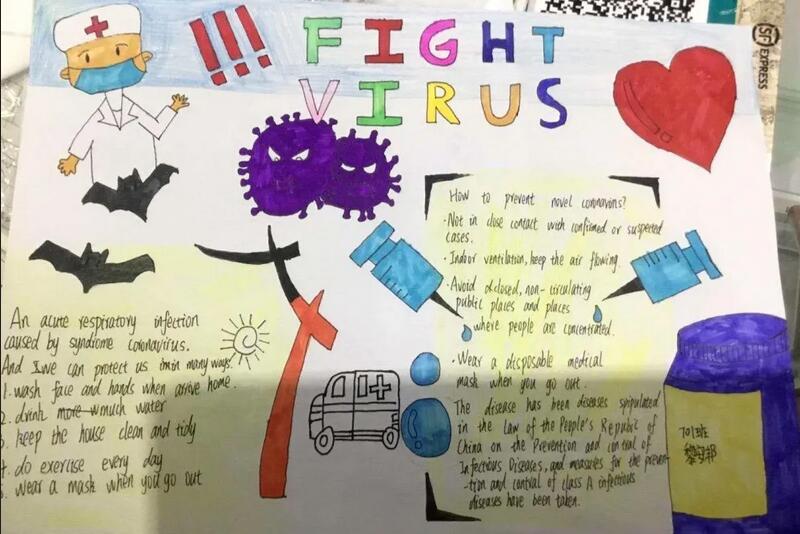 FIGHT
VIRUS
SF EXPRESS
An acute respiratory infection
caused by syndrome coronavirus.
And I we can protect us in many ways.
1. wash face and hands when arrive home.
2. drink more much water
3. keep the house clean and tidy
4. do exercise every day
5. wear a mask when you go out
How to prevent novel coronavirus?
· Not in close contact with confirmed or suspected
cases.
· Indoor ventilation, keep the air flowing.
· Avoid closed, non-circulating
public places and places
where people are concentrated.
· Wear a disposable medical
mask when you go out.
The disease has been diseases stipulated
in the Law of the People's Republic of
China on the Prevention and control of
Infectious Diseases, and measures for the preven-
-tion and control of class A infectious
diseases have been taken.
701班